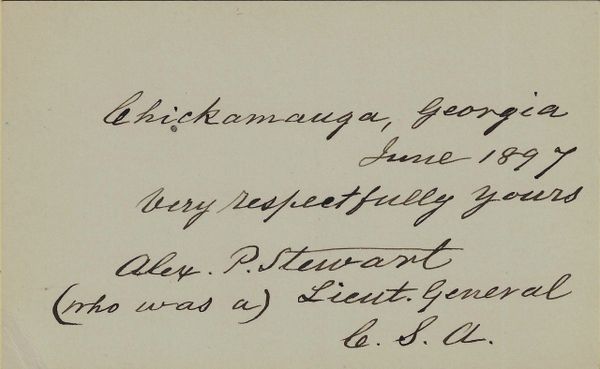 Chickamauga, Georgia
June 1897
Very respectfully yours
Alex. P. Stewart
(who was a) Lieut. General
C. S. A.